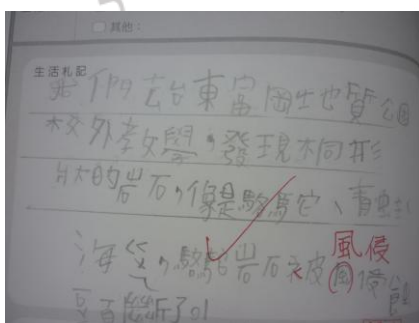 □其他：
生活札記
我們去台東富岡地質公園
校外教學，發現不同形
狀的岩石，像是駱駝、青蛙
海ㄍㄡˇ，駱駝岩石 皮風侵
風侵
頭 斷了！